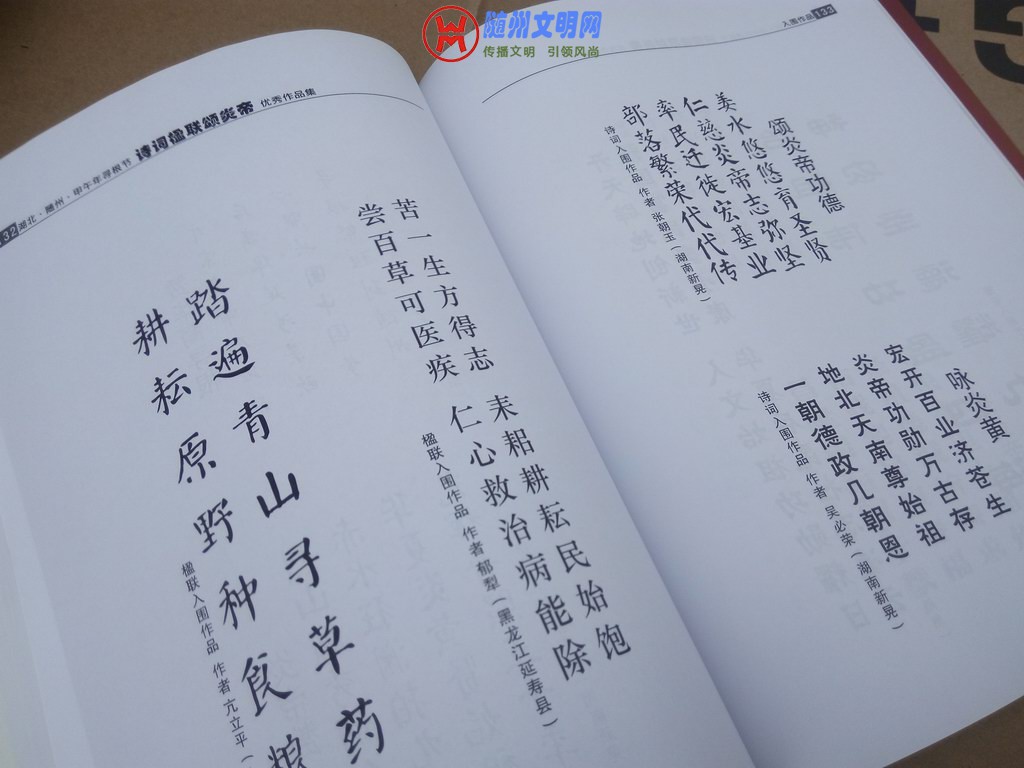 随州文明网
传播文明 引领风尚
入围作品 133
颂炎帝功德
姜水悠悠育圣贤
仁慈炎帝志弥坚
率民迁徙宏基业
部落繁荣代代传
诗词入围作品 作者 张朝玉（湖南新晃）
咏炎黄
宏开百业济苍生
炎帝功勋万古存
地北天南尊始祖
一朝德政几朝恩
诗词入围作品 作者 吴必荣（湖南新晃）
132 湖北·随州·甲午年寻根节 诗词楹联颂炎帝 优秀作品集
苦一生方得志 耒耜耕耘民始饱
尝百草可医疾 仁心救治病能除
楹联入围作品 作者 郁犁（黑龙江延寿县）
踏遍青山寻草药
耕耘原野种食粮
楹联入围作品 作者 亢立平（